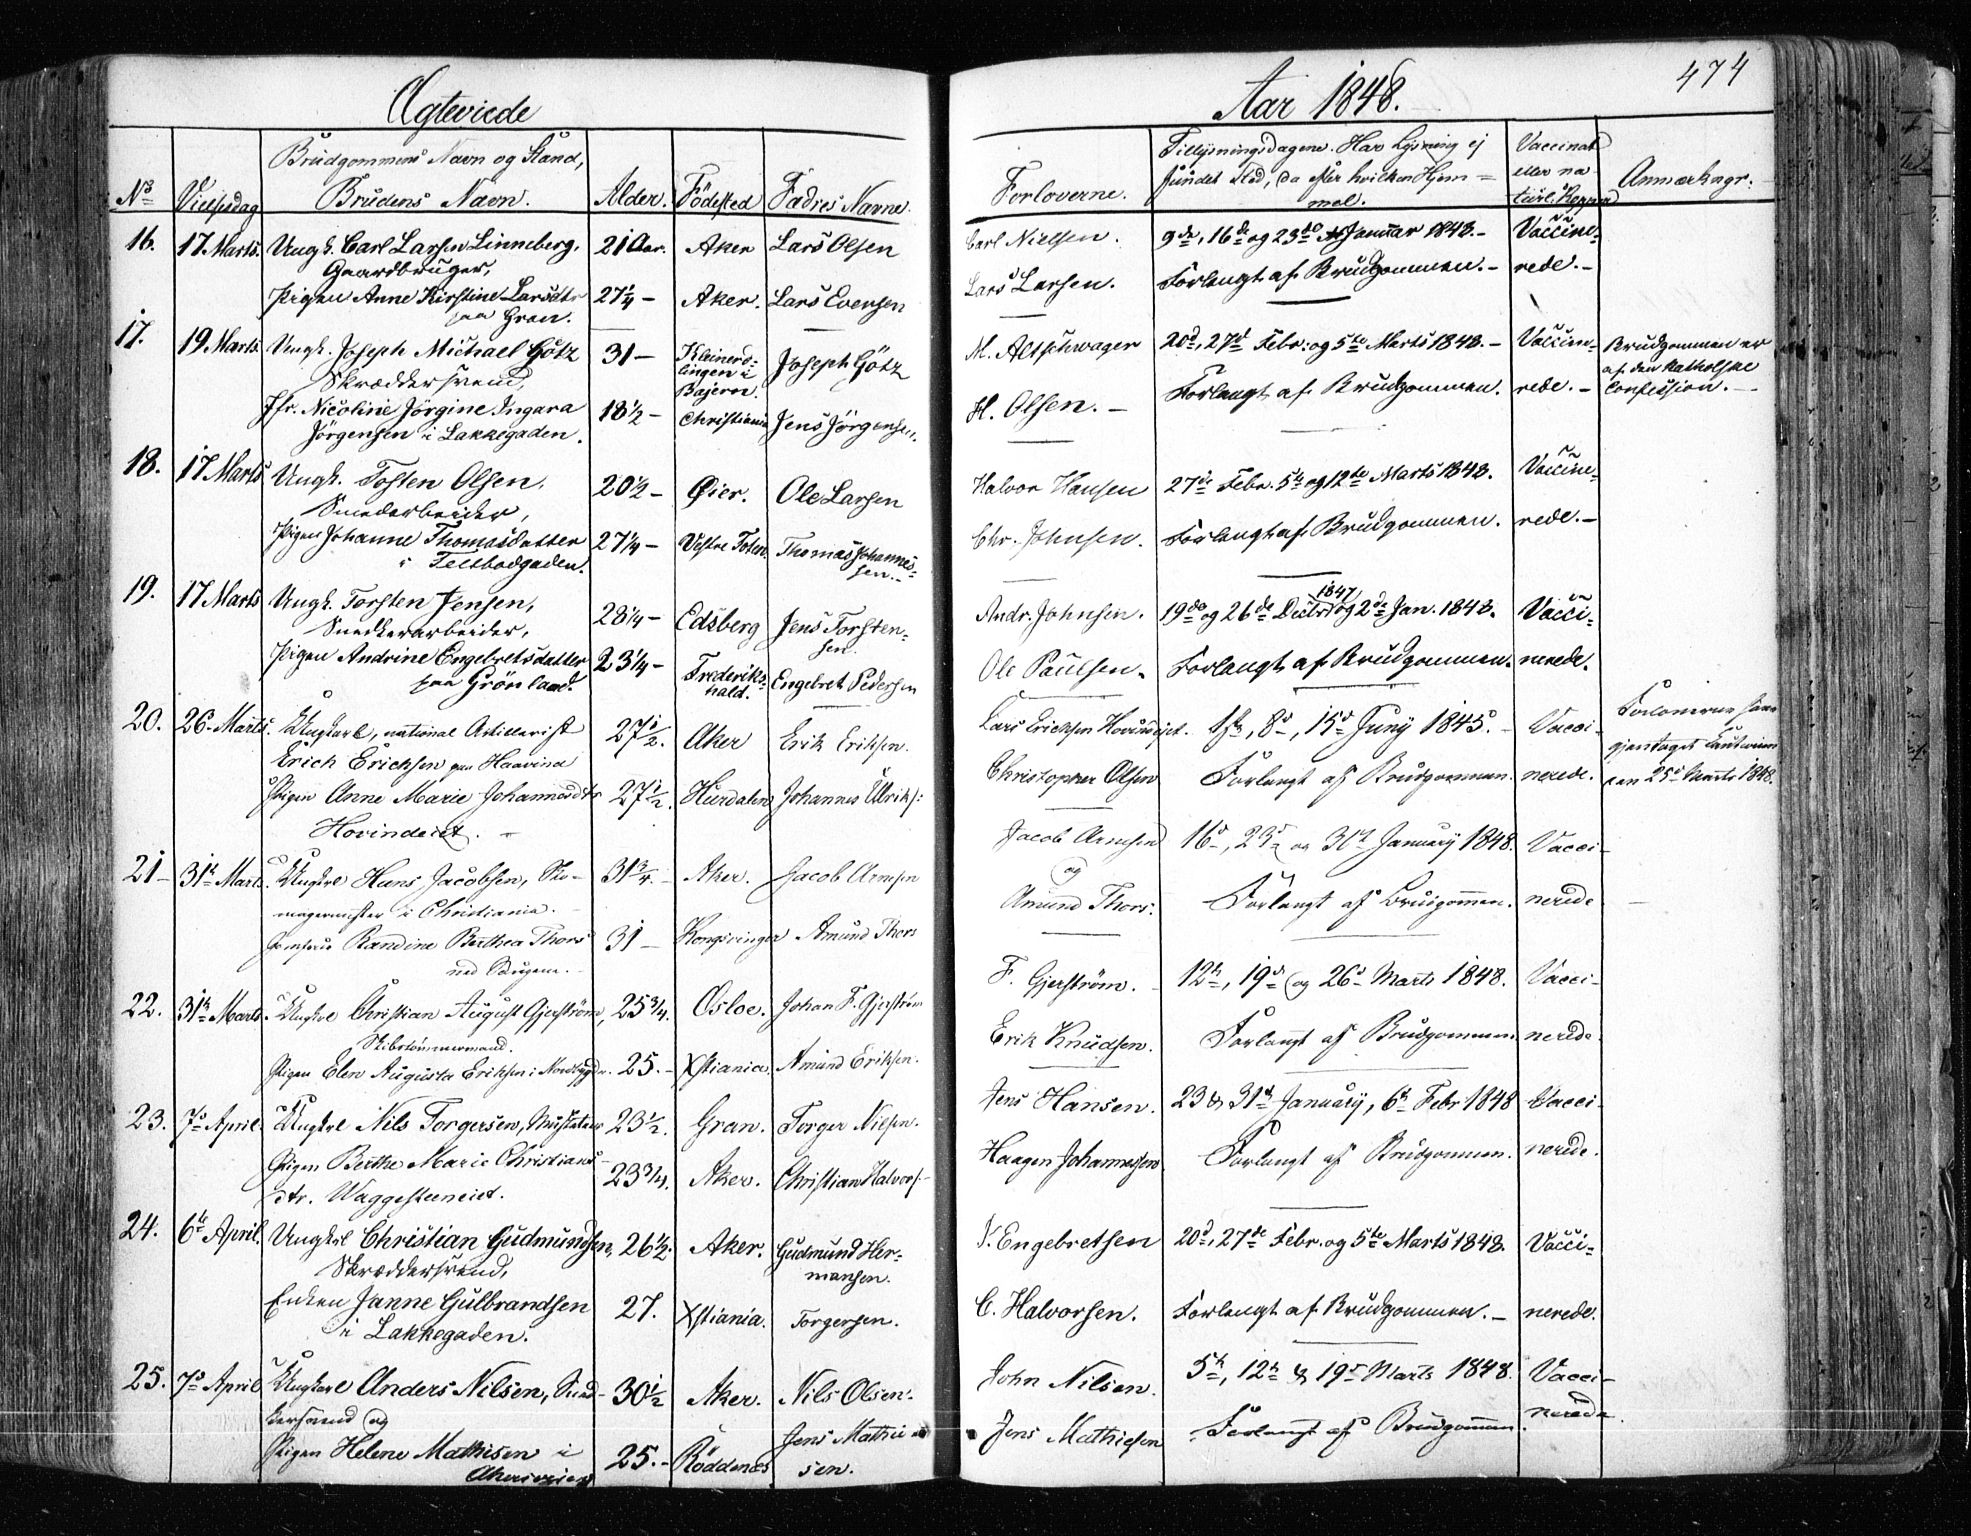 Ægteviede
No
Vielsesdag
Brudgommens Navn og Stand,
Brudens Navn.
Alder.
Födested
Fadres Navne.
16. 17 Marts. Ungk. Carl Larsen Linneberg, 21 Aar. Aker Lars Olsen
Gaardbruger,
Pigen Anne Kirstine Larsdtr 27¼ – Aker. Lars Evensen
paa Grøn.
17. 19 Marts Ungk. Joseph Michael Götz 31 – Kleinerd- Joseph Götz
Skræddersvend, lingen i
Bajern.
Jfr. Nicoline Jörgine Ingara 18½ – Christiania Jens Jörgensen.
Jörgensen i Lakkegaden.
18. 17 Marts Ungk. Tosten Olsen, 20½ – Øier. Ole Larsen
Smedarbeider,
Pigen Johanne Thomasdatter 27¼ – Vestre Toten. Thomas Johannes-
i Feltbodgaden. sen.–
19. 17 Marts Ungk. Torsten Jensen, 28¼ – Edsberg Jens Torsten-
Snedkerarbeider, sen.
Pigen Andrine Engebretsdatter 23¼ – Frederiks- Engebret Pedersen
paa Grönland. hald.
20. 26. Marts. Ungkarl, national Artillerist 27½. Aker Erik Eriksen.
Erich Erichsen paa Haavind
Pigen Anne Marie Johannesdtr 27½. Hurdalen Johannes Ulriks:
Hovindeiet. –
21 – 31te Marts. Ungkrl Hans Jacobsen, Sko- 31¾. – Aker. Jacob Arnesen
magermester i Christiania. –
Jomfrue Randine Berthea Thors 31 – Kongsvinger Amund Thors
22. 31te Marts. Ungkrl Christian August Gjerström, 25¾. Osloe. Johan F. Gjerström
Skibstömmermand.
Pigen Elen Augusta Eriksen i Nordbygdn. 25. – Xstiania. Amund Eriksen.
23. 7de April. Ungkrl Nils Torgersen, 23½. Gran. Torger Nielsen.
Pigen Berthe Marie Christians- 23¾. Aker. Christian Halvors:
dtr. Waggesteneiet.
24. 6te April. Ungkrl Christian Gudmundsen, 26½. Aker. Gudmund Her-
Skræddersvend, mansen.
Enken Janne Gulbrandsen 27. Xstiania. Torgersen.
i Lakkegaden.
25. 7de April Ungkarl Anders Nilsen, Sned- 30½ Aker. Nils Olsen.
kersvend og
Pigen Helene Mathisen i 25. – Röddenæs Jens Mathie-
Akersveien sen.
Aar 1848.
474
Forloverne.
Tillysningsdagene. Har Lysning ej
fundet Sted, da efter hvilken Hjem=
mel.
Vaccinat
eller na-
turl. Kopper
Anmærkngr.
Carl Nielsen. 9de, 16de og 23de Januar 1848. – Vaccine-
Lars Larsen. Forlangt af Brudgommen. – rede. –
M. Altschwager 20d, 27d Febr. og 5te Marts 1848. – Vaccine- Brudgommen er
af den katholske
H. Olsen. – Forlangt af Brudgommen. rede. – Confession. –
Halvor Hansen 27de Febr. 5te og 12te Marts 1848. Vaccine-
Chr. Johnsen. Forlangt af Brudgommen. rede. –
1847
Andr. Johnsen. 19de og 26de Decbr og 2de Jan. 1848. Vacci-
Ole Paulsen. Forlangt af Brudgommen. nerede.
Lars Ericksen Hovindeiet. 1ste, 8de, 15de Juny 1845. – Vacci- Forloverne have
gjentaget Cautionen
Christopher Olsen Forlangt af Brudgommen. nerede. den 25de Marts 1848.
Jacob Arnesen 16de, 23de og 30te January 1848. Vacci-
og
Amund Thors. Forlangt af Brudgommen. nerede
F. Gjerström. 12te, 19de og 26de Marts 1848. Vacci-
Erik Knudsen. Forlangt af Brudgommen nerede.
Jens Hansen. 23 & 31te January, 6te Febr 1848 Vacci-
Haagen Johannesen Forlangt af Brudgommen. nerede.
Engebretsen 20de, 27de Febr. og 5te Marts 1848. Vacci-
C. Halvorsen. Forlangt af Brudgommen. – nerede.
John Nilsen. 5te, 12te & 19de Marts 1848. Vacci-
Jens Mathiesen Forlangt af Brudgommen. nerede.